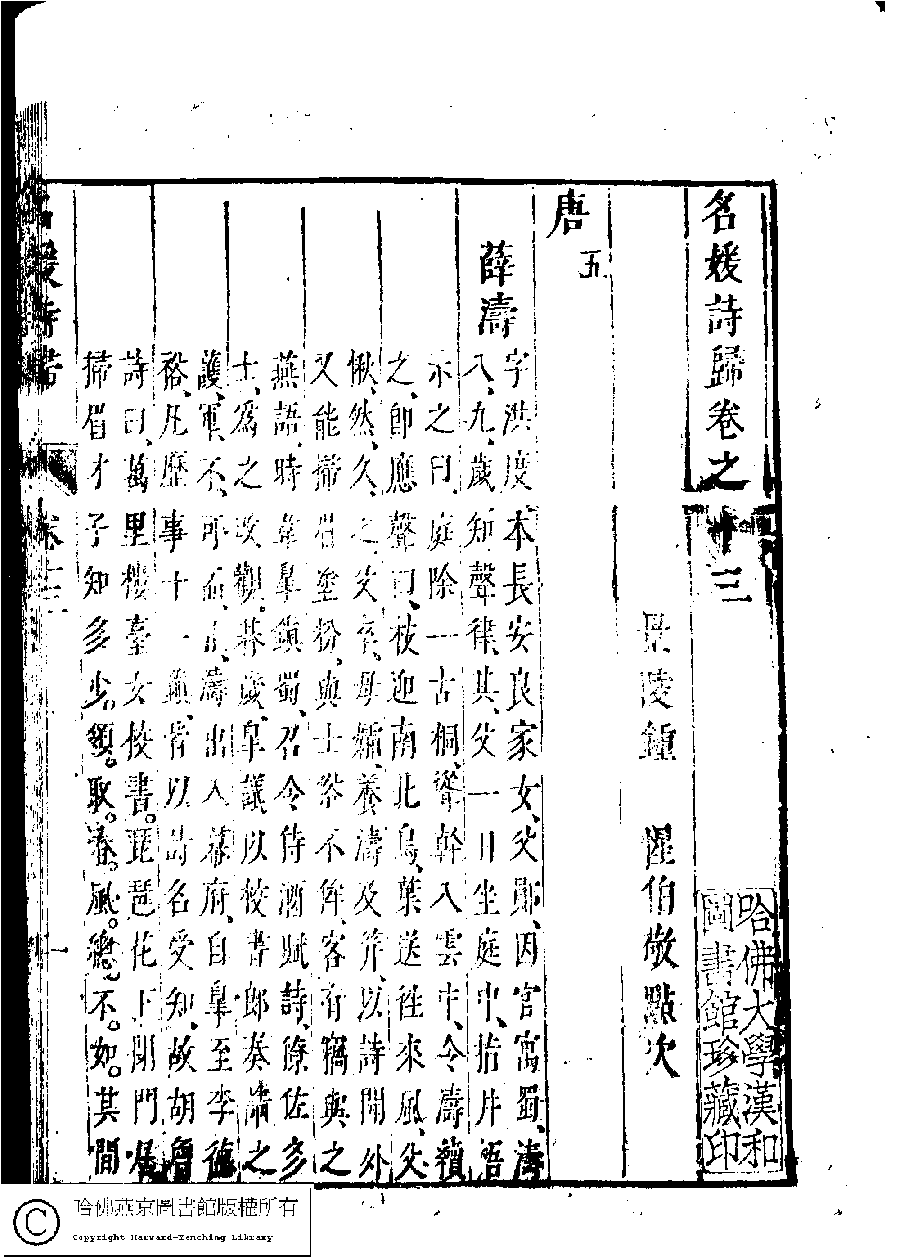 名媛詩歸卷之十三
景陵鍾 惺伯敬點次
唐
五
薛濤
字洪度、本長安良家女、父鄖、因官寓蜀、濤
八九歲、知聲律、其父一日坐庭中、指井梧
示之曰、庭除一古桐、聳幹入雲中、令濤續
之、即應聲曰、枝迎南北鳥、葉送往來風、父
愀然久之、父卒、母孀、養濤及笄、以詩聞外
又能掃眉塗粉、與士族不侔、客有竊與之
燕語、時韋皋鎮蜀、召令侍酒賦詩、僚佐多
士、為之改觀。暮歲、皋議以校書郎奏請之
護軍不可而止、濤出入幕府、自皋至李德
裕、凡歷事十一鎮、皆以詩名受知、故胡曾
詩曰、萬里樓臺女校書。琵琶花下閉門居
掃眉才子知多少。領取。春。風。總。不。如。其間
名媛詩歸
卷十三
一
哈佛大學漢和
圖書館珍藏印
哈佛燕京圖書館版權所有
Copyright Harvard-Yenching Library